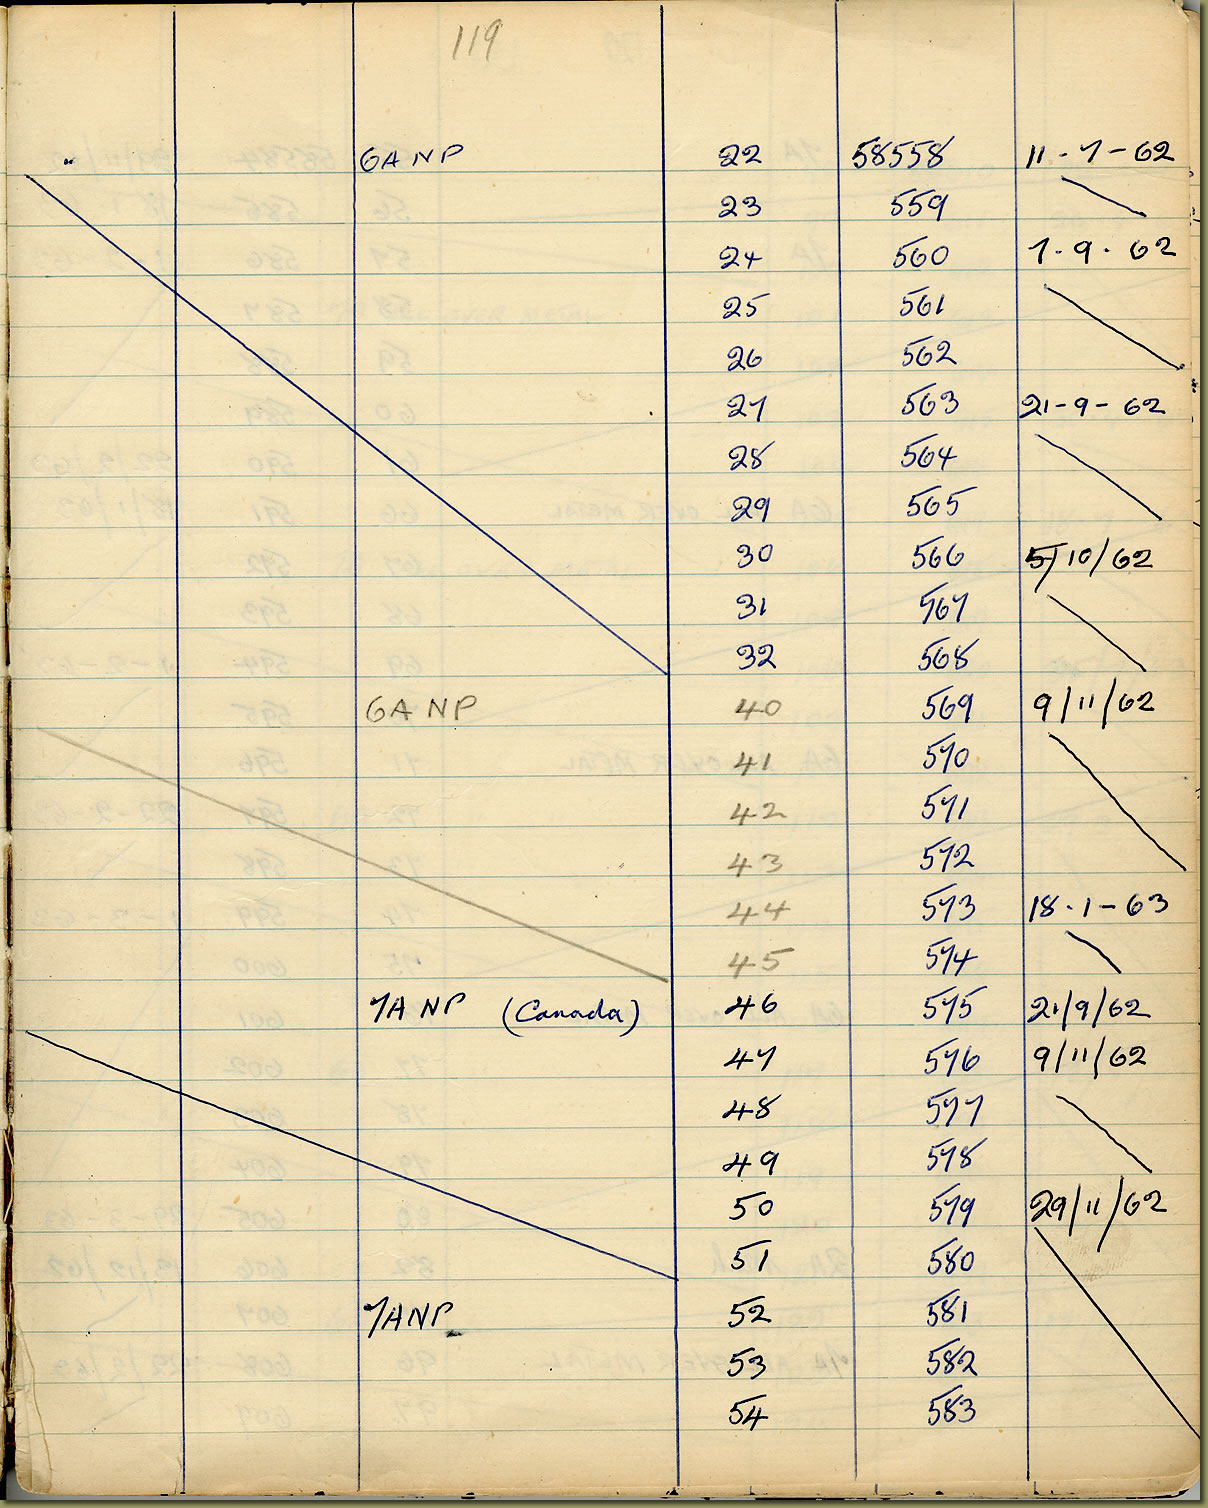 119
6A NP 22 58558 11-7-62
23 559
24 560 7.9.62
25 561
26 562
27 563 21-9-62
28 564
29 565
30 566 5/10/62
31 567
32 568
6A NP 40 569 9/11/62
41 570
42 571
43 572
44 573 18.1-63
45 574
7A NP (Canada) 46 575 21/9/62
47 576 9/11/62
48 577
49 578
50 579 29/11/62
51 580
7ANP 52 581
53 582
54 583